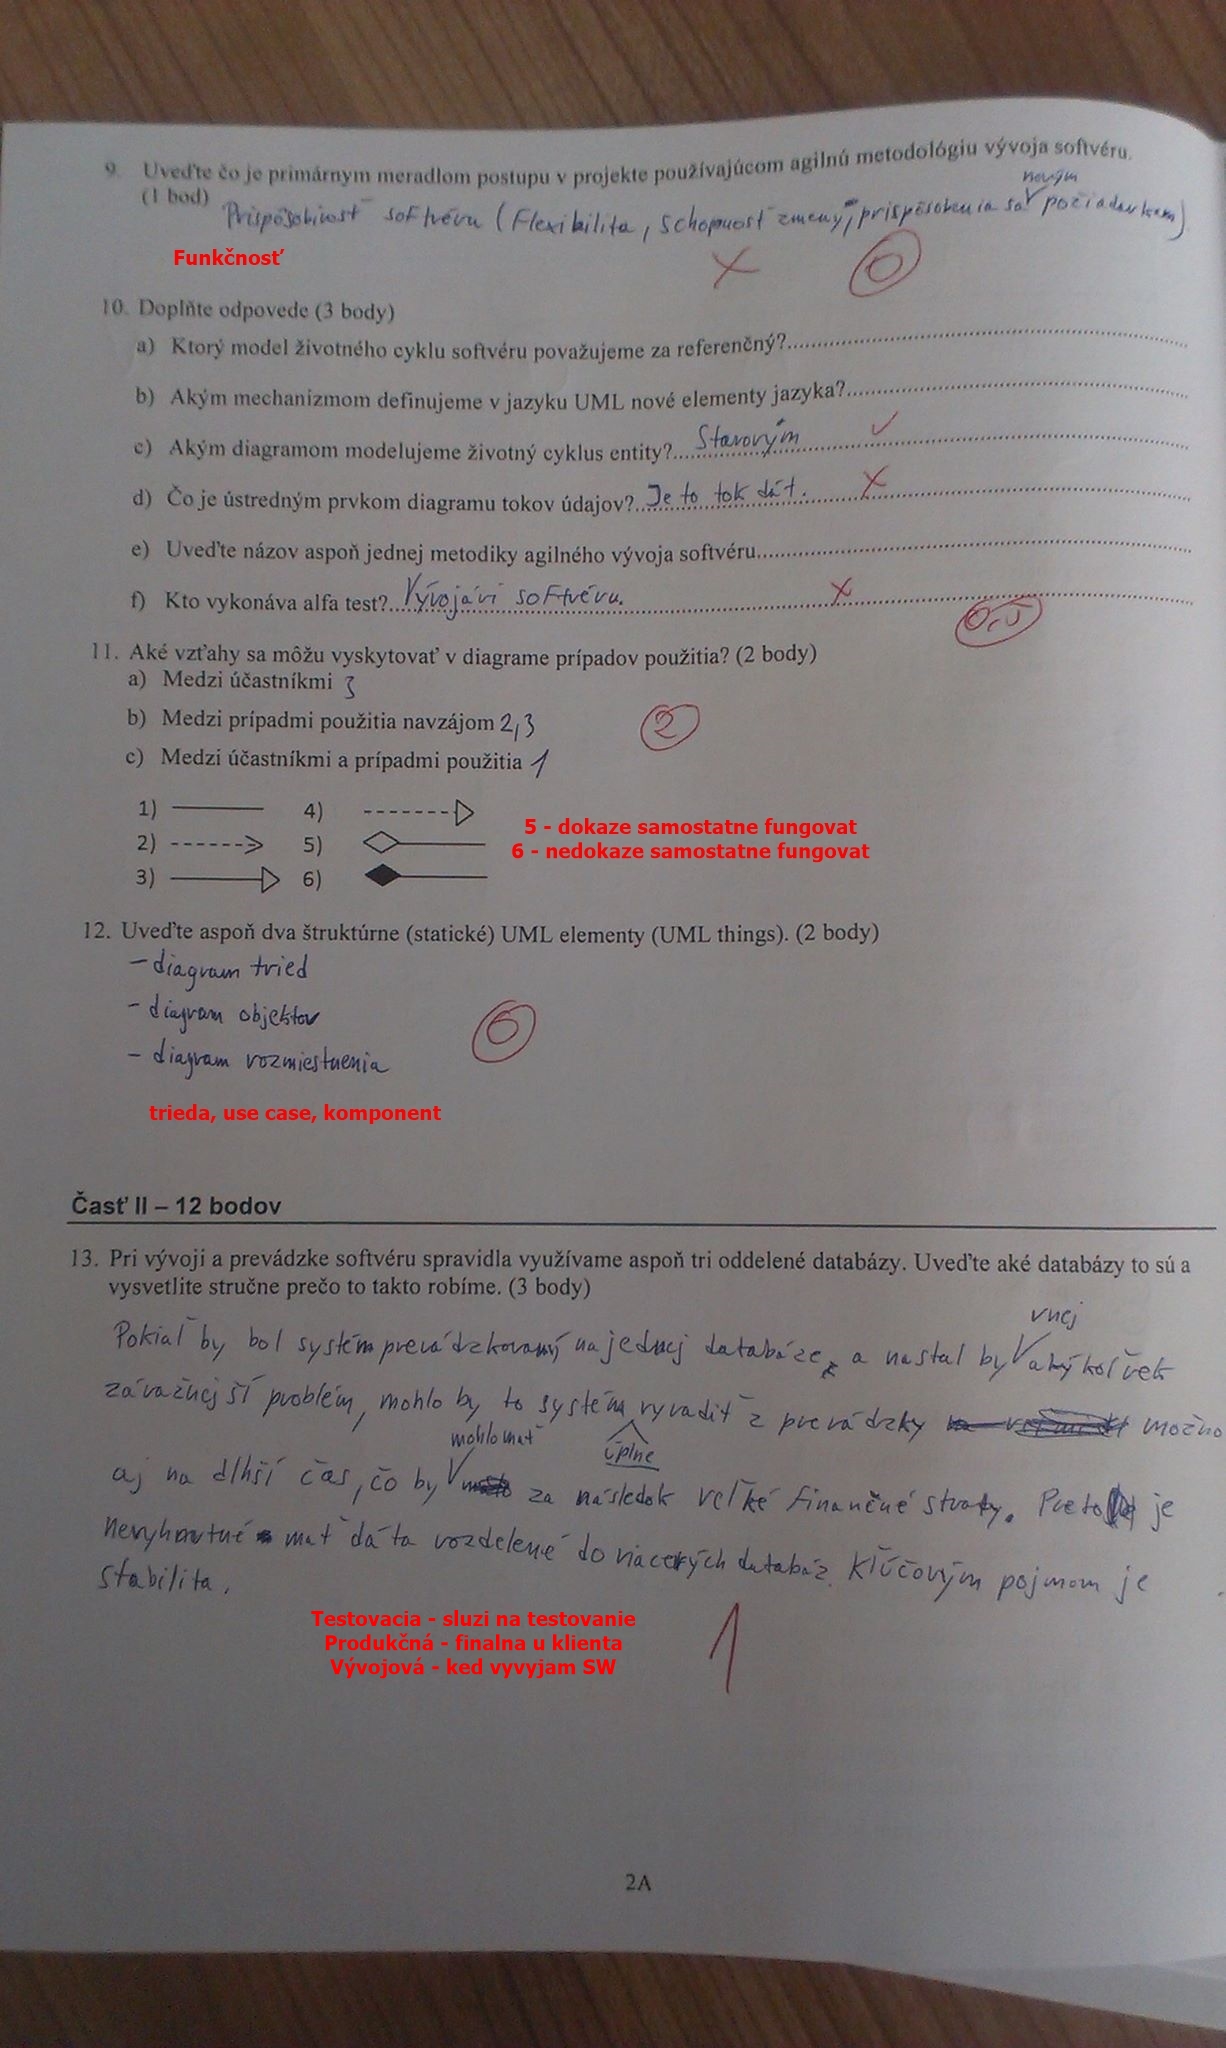 9. Uveďte čo je primárnym meradlom postupu v projekte používajúcom agilnú metodológiu vývoja softvéru.
novým
(1 bod) Prispôsobivosť softvéru (Flexibilita, schopnosť zmeny, prispôsobenia sa požiadavkam)
Funkčnosť
X 0
10. Doplňte odpovede (3 body)
a) Ktorý model životného cyklu softvéru považujeme za referenčný?
b) Akým mechanizmom definujeme v jazyku UML nové elementy jazyka?
c) Akým diagramom modelujeme životný cyklus entity? Stavovým ✓
d) Čo je ústredným prvkom diagramu tokov údajov? Je to tok dát. X
e) Uveďte názov aspoň jednej metodiky agilného vývoja softvéru
f) Kto vykonáva alfa test? Vývojári softvéru. X
0,5
11. Aké vzťahy sa môžu vyskytovať v diagrame prípadov použitia? (2 body)
a) Medzi účastníkmi 3
b) Medzi prípadmi použitia navzájom 2,3
2
c) Medzi účastníkmi a prípadmi použitia 1
1) 4)
2) 5)
3) 6)
5 - dokaze samostatne fungovat
6 - nedokaze samostatne fungovat
12. Uveďte aspoň dva štruktúrne (statické) UML elementy (UML things). (2 body)
- diagram tried
- diagram objektov
- diagram rozmiestnenia
0
trieda, use case, komponent
Časť II – 12 bodov
13. Pri vývoji a prevádzke softvéru spravidla využívame aspoň tri oddelené databázy. Uveďte aké databázy to sú a
vysvetlite stručne prečo to takto robíme. (3 body)
vnej
Pokiaľ by bol systém prevádzkovaný na jednej databáze, a nastal by akýkoľvek
závažnejší problém, mohlo by to systém vyradiť z prevádzky možno
mohlo mať úplne
aj na dlhší čas, čo by za následok veľké finančné straty. Preto je
nevyhnutné mať dáta rozdelené do viacerých databáz. Kľúčovým pojmom je
stabilita.
Testovacia - sluzi na testovanie
Produkčná - finalna u klienta
Vývojová - ked vyvyjam SW
1
2A